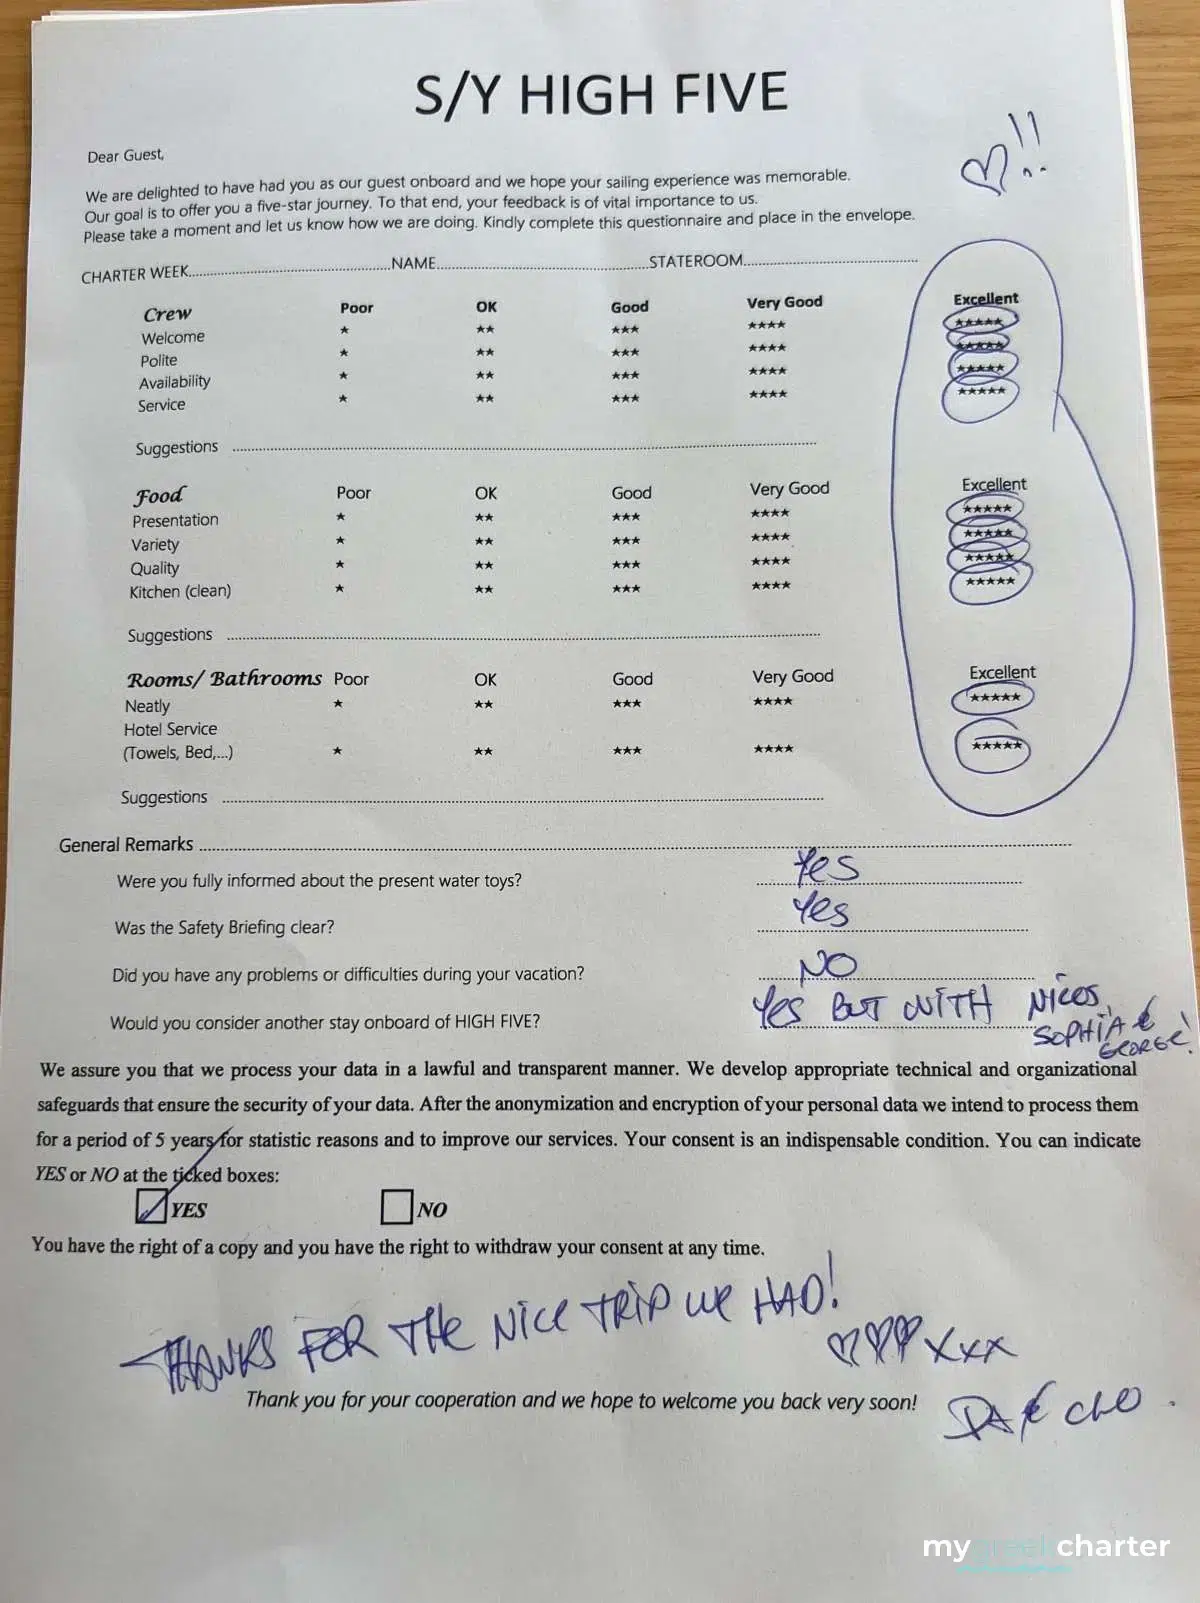 S/Y HIGH FIVE
!!
Dear Guest,
We are delighted to have had you as our guest onboard and we hope your sailing experience was memorable.
Our goal is to offer you a five-star journey. To that end, your feedback is of vital importance to us.
Please take a moment and let us know how we are doing. Kindly complete this questionnaire and place in the envelope.
CHARTER WEEK..........NAME..........STATEROOM..........
Crew Poor OK Good Very Good Excellent
Welcome ★ ★★ ★★★ ★★★★ ★★★★★
Polite ★ ★★ ★★★ ★★★★ ★★★★★
Availability ★ ★★ ★★★ ★★★★ ★★★★★
Service ★ ★★ ★★★ ★★★★ ★★★★★
Suggestions ..........
Food Poor OK Good Very Good Excellent
Presentation ★ ★★ ★★★ ★★★★ ★★★★★
Variety ★ ★★ ★★★ ★★★★ ★★★★★
Quality ★ ★★ ★★★ ★★★★ ★★★★★
Kitchen (clean) ★ ★★ ★★★ ★★★★ ★★★★★
Suggestions ..........
Rooms/ Bathrooms Poor OK Good Very Good Excellent
Neatly ★ ★★ ★★★ ★★★★ ★★★★★
Hotel Service
(Towels, Bed,...) ★ ★★ ★★★ ★★★★ ★★★★★
Suggestions ..........
General Remarks ..........
Were you fully informed about the present water toys? Yes
Was the Safety Briefing clear? Yes
Did you have any problems or difficulties during your vacation? NO
Would you consider another stay onboard of HIGH FIVE? Yes BUT WITH NICOS,
SOPHIA &
GEORGE!
We assure you that we process your data in a lawful and transparent manner. We develop appropriate technical and organizational
safeguards that ensure the security of your data. After the anonymization and encryption of your personal data we intend to process them
for a period of 5 years for statistic reasons and to improve our services. Your consent is an indispensable condition. You can indicate
YES or NO at the ticked boxes:
YES NO
You have the right of a copy and you have the right to withdraw your consent at any time.
THANKS FOR THE NICE TRIP WE HAD!
♡♡♡ xxx
Thank you for your cooperation and we hope to welcome you back very soon!
& CLO
mygreekcharter